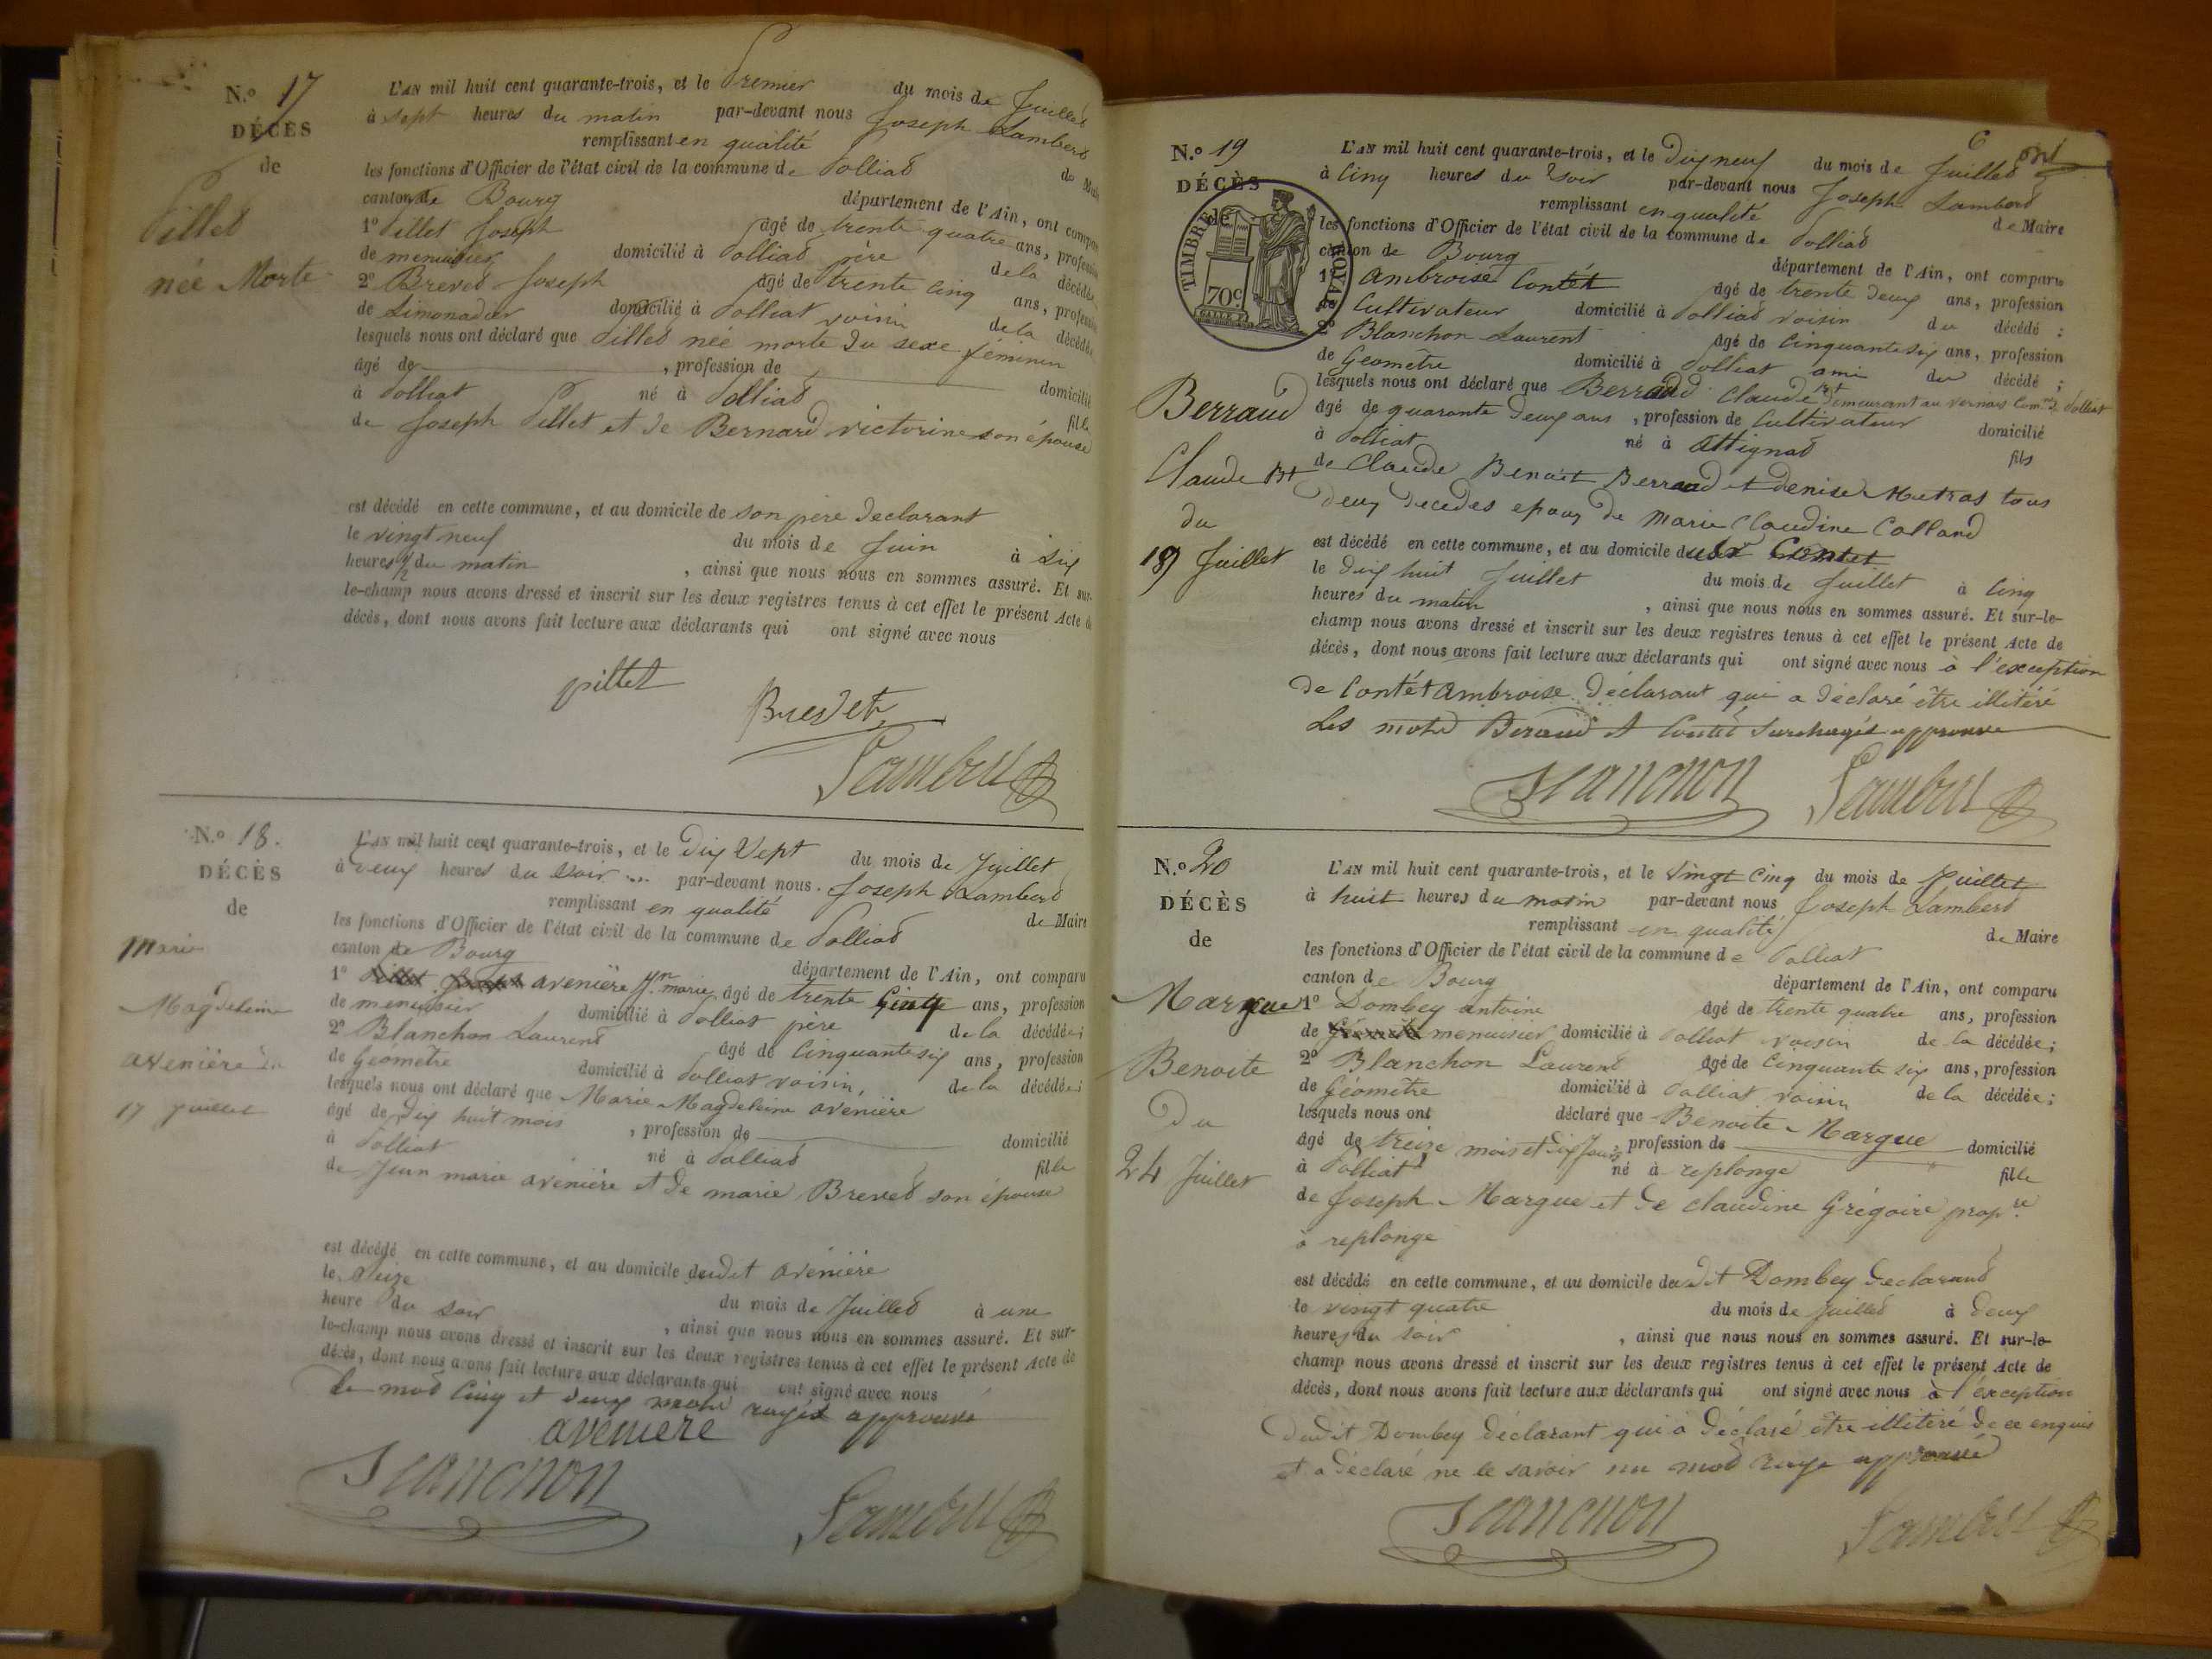 N.º 17
DÉCÈS
de
Pillet
née Morte
L'AN mil huit cent quarante-trois, et le Premier du mois de Juillet
à sept heures du matin par-devant nous Joseph Lambert
remplissant en qualité de Maire
les fonctions d'Officier de l'état civil de la commune de Polliat
canton de Bourg département de l'Ain, ont comparu
1º Pillet Joseph âgé de trente quatre ans, profession
de menuisier domicilié à Polliat père de la décédée
2º Brevet Joseph âgé de trente cinq ans, profession
de Limonadier domicilié à Polliat voisin de la décédée
lesquels nous ont déclaré que Pillet née morte du sexe féminin
âgé de , profession de domicilié
à Polliat né à Polliat fille
de Joseph Pillet et de Bernard victorine son épouse
est décédé en cette commune, et au domicile de son père declarant
le vingt neuf du mois de Juin à six
heures 1/2 du matin , ainsi que nous nous en sommes assuré. Et sur-
le-champ nous avons dressé et inscrit sur les deux registres tenus à cet effet le présent Acte de
décès, dont nous avons fait lecture aux déclarants qui ont signé avec nous
pillet
Brevet
Lambert
N.º 18.
DÉCÈS
de
Marie
Magdeleine
avenière du
17 Juillet
L'AN mil huit cent quarante-trois, et le Dix Sept du mois de Juillet
à Deux heures du Soir par-devant nous Joseph Lambert
remplissant en qualité de Maire
les fonctions d'Officier de l'état civil de la commune de Polliat
canton de Bourg département de l'Ain, ont comparu
1º avenière Jn marie âgé de trente Cinq ans, profession
de menuisier domicilié à Polliat père de la décédée;
2º Blanchon Laurent âgé de Cinquante six ans, profession
de Géomètre domicilié à Polliat voisin, de la décédée;
lesquels nous ont déclaré que Marie Magdeleine avénière
âgé de Dix huit mois , profession de domicilié
à Polliat né à Polliat fille
de Jean marie avénière et de marie Brevet son épouse
est décédé en cette commune, et au domicile dudit avénière
le Seize du mois de Juillet à une
heure du soir , ainsi que nous nous en sommes assuré. Et sur-
le-champ nous avons dressé et inscrit sur les deux registres tenus à cet effet le présent Acte de
décès, dont nous avons fait lecture aux déclarants qui ont signé avec nous
Le mot Cinq et deux mots rayés approuvés
avenière
Blanchon
Lambert
6
N.º 19
DÉCÈS
de
TIMBRE ROYAL
70c
Berraud
Claude Bt
du
18 Juillet
L'AN mil huit cent quarante-trois, et le Dix neuf du mois de Juillet
à Cinq heures du Soir par-devant nous Joseph Lambert
remplissant en qualité de Maire
les fonctions d'Officier de l'état civil de la commune de Polliat
canton de Bourg département de l'Ain, ont comparu
1º Ambroise Contét âgé de trente deux ans, profession
de Cultivateur domicilié à Polliat voisin du décédé;
2º Blanchon Laurent âgé de Cinquante six ans, profession
de Géomètre domicilié à Polliat ami du décédé;
lesquels nous ont déclaré que Berraud Claude Bt demeurant au vernais Com.ne de Polliat
âgé de quarante deux ans , profession de Cultivateur domicilié
à Polliat né à Attignat fils
de Claude Benoit Berraud et denise Metras tous
deux decedes epoux de Marie Claudine Colland
est décédé en cette commune, et au domicile dudit Contet
le dix huit Juillet du mois de Juillet à Cinq
heures du matin , ainsi que nous nous en sommes assuré. Et sur-le-
champ nous avons dressé et inscrit sur les deux registres tenus à cet effet le présent Acte de
décès, dont nous avons fait lecture aux déclarants qui ont signé avec nous à l'exception
de Contét Ambroise déclarant qui a déclaré être illitéré
Les mots Beraud et Contét Surchargés approuvé
Blanchon
Lambert
N.º 20
DÉCÈS
de
Margue
Benoite
Du
24 Juillet
L'AN mil huit cent quarante-trois, et le Vingt Cinq du mois de Juillet
à huit heures du matin par-devant nous Joseph Lambert
remplissant en qualité de Maire
les fonctions d'Officier de l'état civil de la commune de Polliat
canton de Bourg département de l'Ain, ont comparu
1º Dombey antoine âgé de trente quatre ans, profession
de menuisier domicilié à Polliat voisin de la décédée;
2º Blanchon Laurent âgé de Cinquante six ans, profession
de Géomètre domicilié à Polliat voisin de la décédée;
lesquels nous ont déclaré que Benoite Margue
âgé de treize mois et dix Jours, profession de domicilié
à Polliat né à replonge fille
de Joseph Margue et de claudine Grégoire prop.re
à replonge
est décédé en cette commune, et au domicile dudit Dombey declarant
le vingt quatre du mois de Juillet à Deux
heures du soir , ainsi que nous nous en sommes assuré. Et sur-le-
champ nous avons dressé et inscrit sur les deux registres tenus à cet effet le présent Acte de
décès, dont nous avons fait lecture aux déclarants qui ont signé avec nous à l'exception
dudit Dombey déclarant qui a déclaré être illitéré de ce enquis
et a déclaré ne le savoir un mot rayé approuvé
Blanchon
Lambert